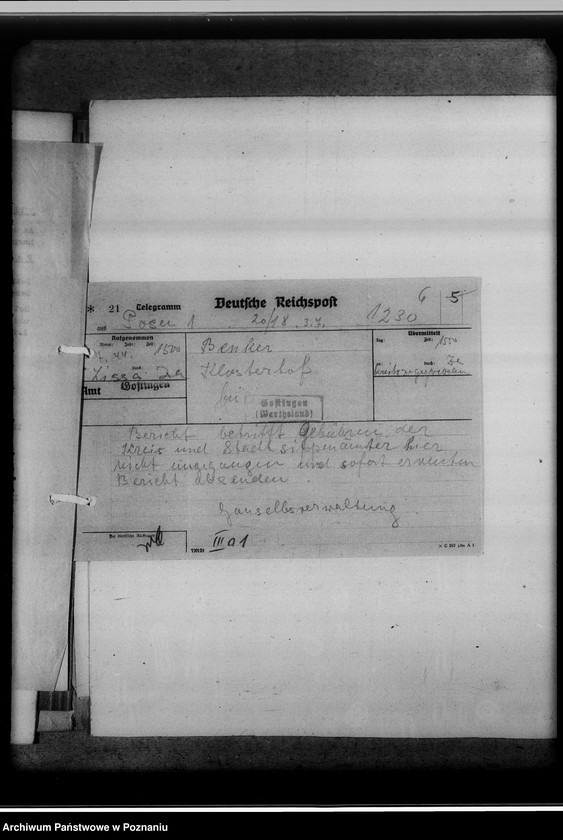 6 5
* 21 Telegramm Deutsche Reichspost
aus Posen 1 20/18 3.7. 1230
Aufgenommen
Zeit: 1500
Lissa
Amt Gostingen
Benker
Klosterhof
bei
Gostingen
(Wartheland)
Übermittelt
Tag: Zeit: 1500
durch:
Bericht betrifft Gebühren der
Kreis und Stadt sippenämter hier
nicht eingegangen und sofort erneuten
Bericht absenden .
Gauselbstverwaltung .
III a 1
Archiwum Państwowe w Poznaniu